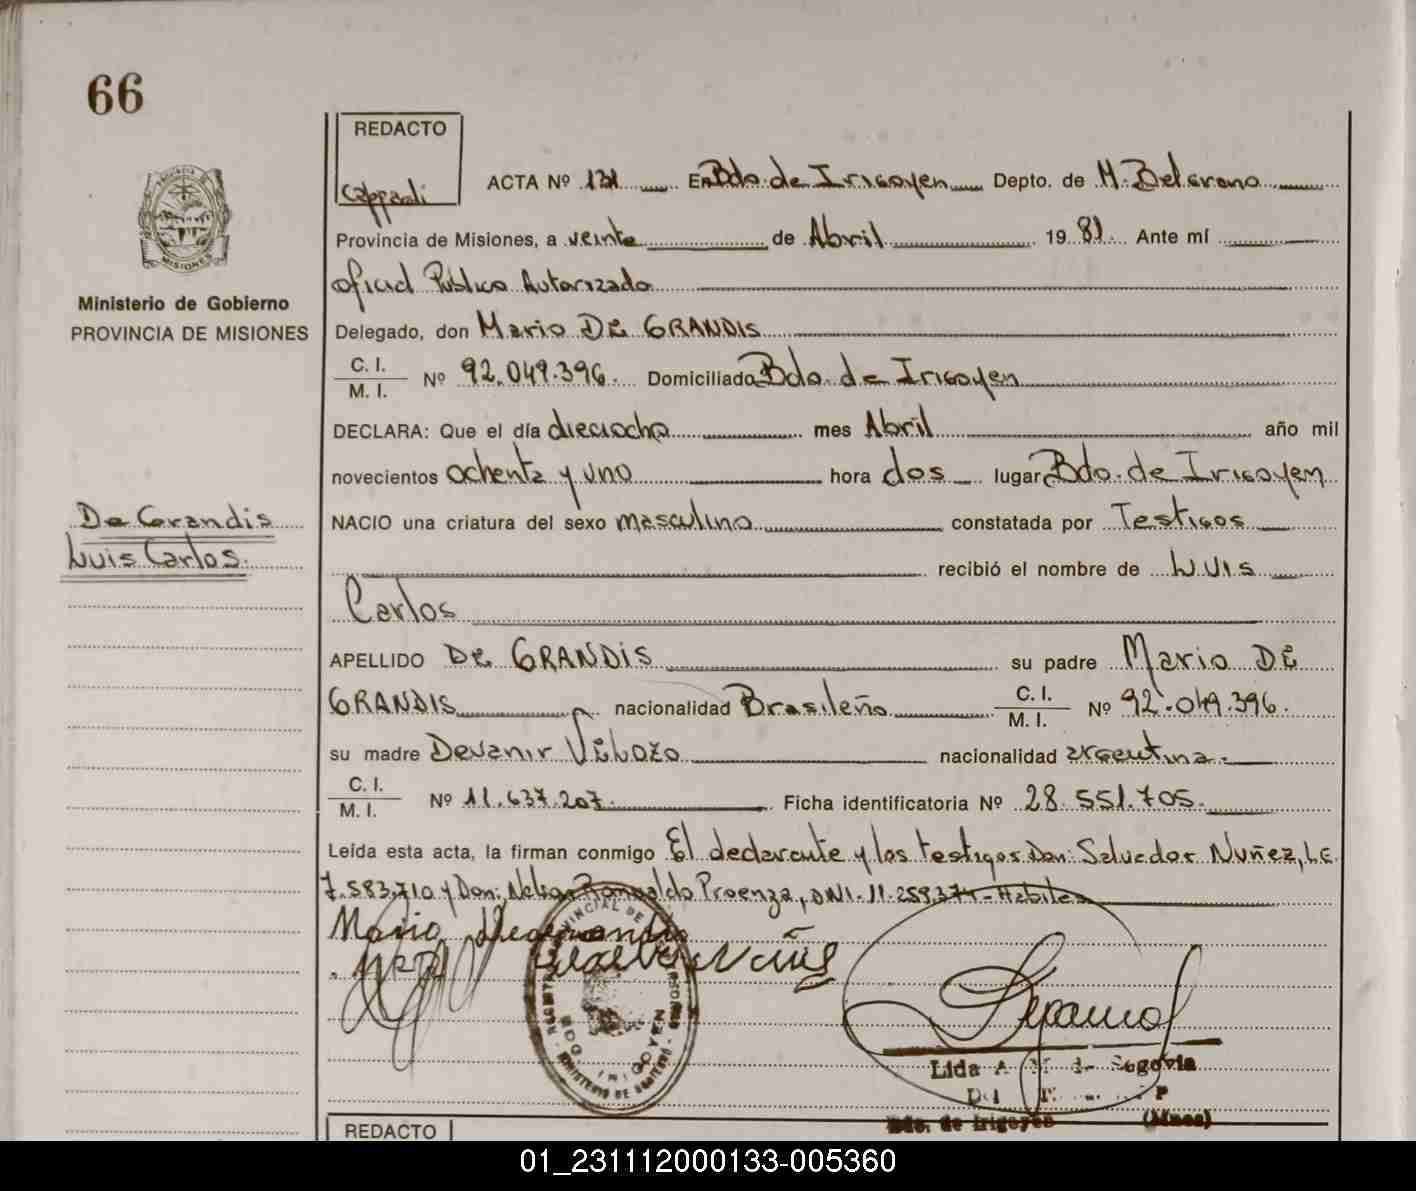 66
REDACTO
Ministerio de Gobierno
PROVINCIA DE MISIONES
De Grandis
Luis Carlos.
ACTA Nº 131 En Bdo. de Irigoyen Depto. de M. Belgrano
Provincia de Misiones, a veinte de Abril 1981. Ante mí
oficial Público Autorizado
Delegado, don Mario DE GRANDIS
C. I.
M. I. Nº 92.049.396. Domiciliada Bdo. de Irigoyen
DECLARA: Que el día dieciocho mes Abril año mil
novecientos ochenta y uno hora dos lugar Bdo. de Irigoyen
NACIO una criatura del sexo masculino constatada por Testigos
recibió el nombre de Luis
Carlos
APELLIDO DE GRANDIS su padre Mario DE
GRANDIS nacionalidad Brasileño C. I.
M. I. Nº 92.049.396.
su madre Devanir VELOZO nacionalidad argentina.
C. I.
M. I. Nº 11.637.207. Ficha identificatoria Nº 28.551.705.
Leída esta acta, la firman conmigo El declarante y los testigos Don: Salvador Nuñez, L.E.
7.583.710 y Don: Nelson Romualdo Proenza, DNI. 11.259.374 - Habiles
Mario Degrandis
Lida A. M. de Segovia
Bdo. de Irigoyen (Mnes)
REDACTO
01_231112000133-005360